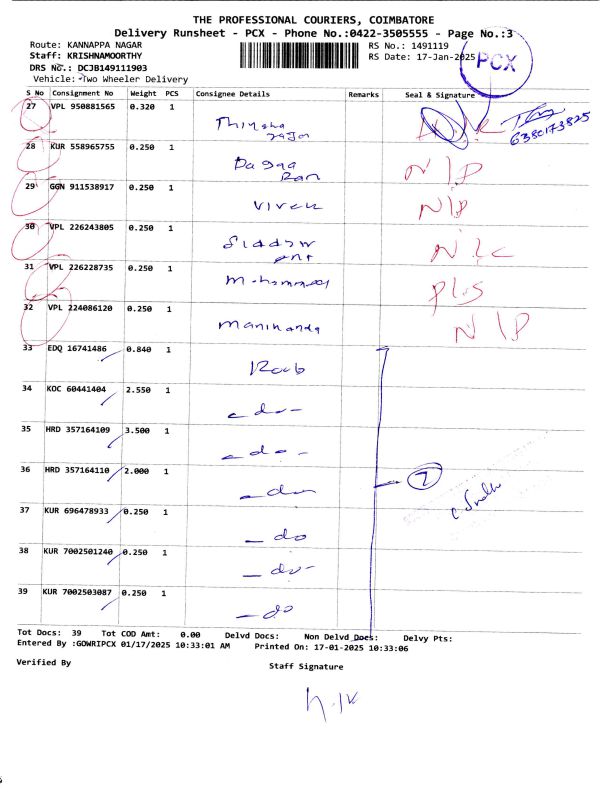 THE PROFESSIONAL COURIERS, COIMBATORE
Delivery Runsheet - PCX - Phone No.:0422-3505555 - Page No.:3
Route: KANNAPPA NAGAR RS No.: 1491119
Staff: KRISHNAMOORTHY RS Date: 17-Jan-2025
PCX
DRS No.: DCJB149111903
Vehicle: Two Wheeler Delivery
S No Consignment No Weight PCS Consignee Details Remarks Seal & Signature
27 VPL 950881565 0.320 1
6380173825
28 KUR 558965755 0.250 1 N\P
29 GGN 911538917 0.250 1 Vivek N\P
30 VPL 226243805 0.250 1
31 VPL 226228735 0.250 1
32 VPL 224086120 0.250 1 Manikanda N\P
33 EDQ 16741486 0.840 1
34 KOC 60441404 2.550 1 - do -
35 HRD 357164109 3.500 1 - do -
36 HRD 357164110 2.000 1 - do - 7
37 KUR 696478933 0.250 1 - do
38 KUR 7002501240 0.250 1 - do -
39 KUR 7002503087 0.250 1 - do
Tot Docs: 39 Tot COD Amt: 0.00 Delvd Docs: Non Delvd Docs: Delvy Pts:
Entered By :GOWRIPCX 01/17/2025 10:33:01 AM Printed On: 17-01-2025 10:33:06
Verified By Staff Signature